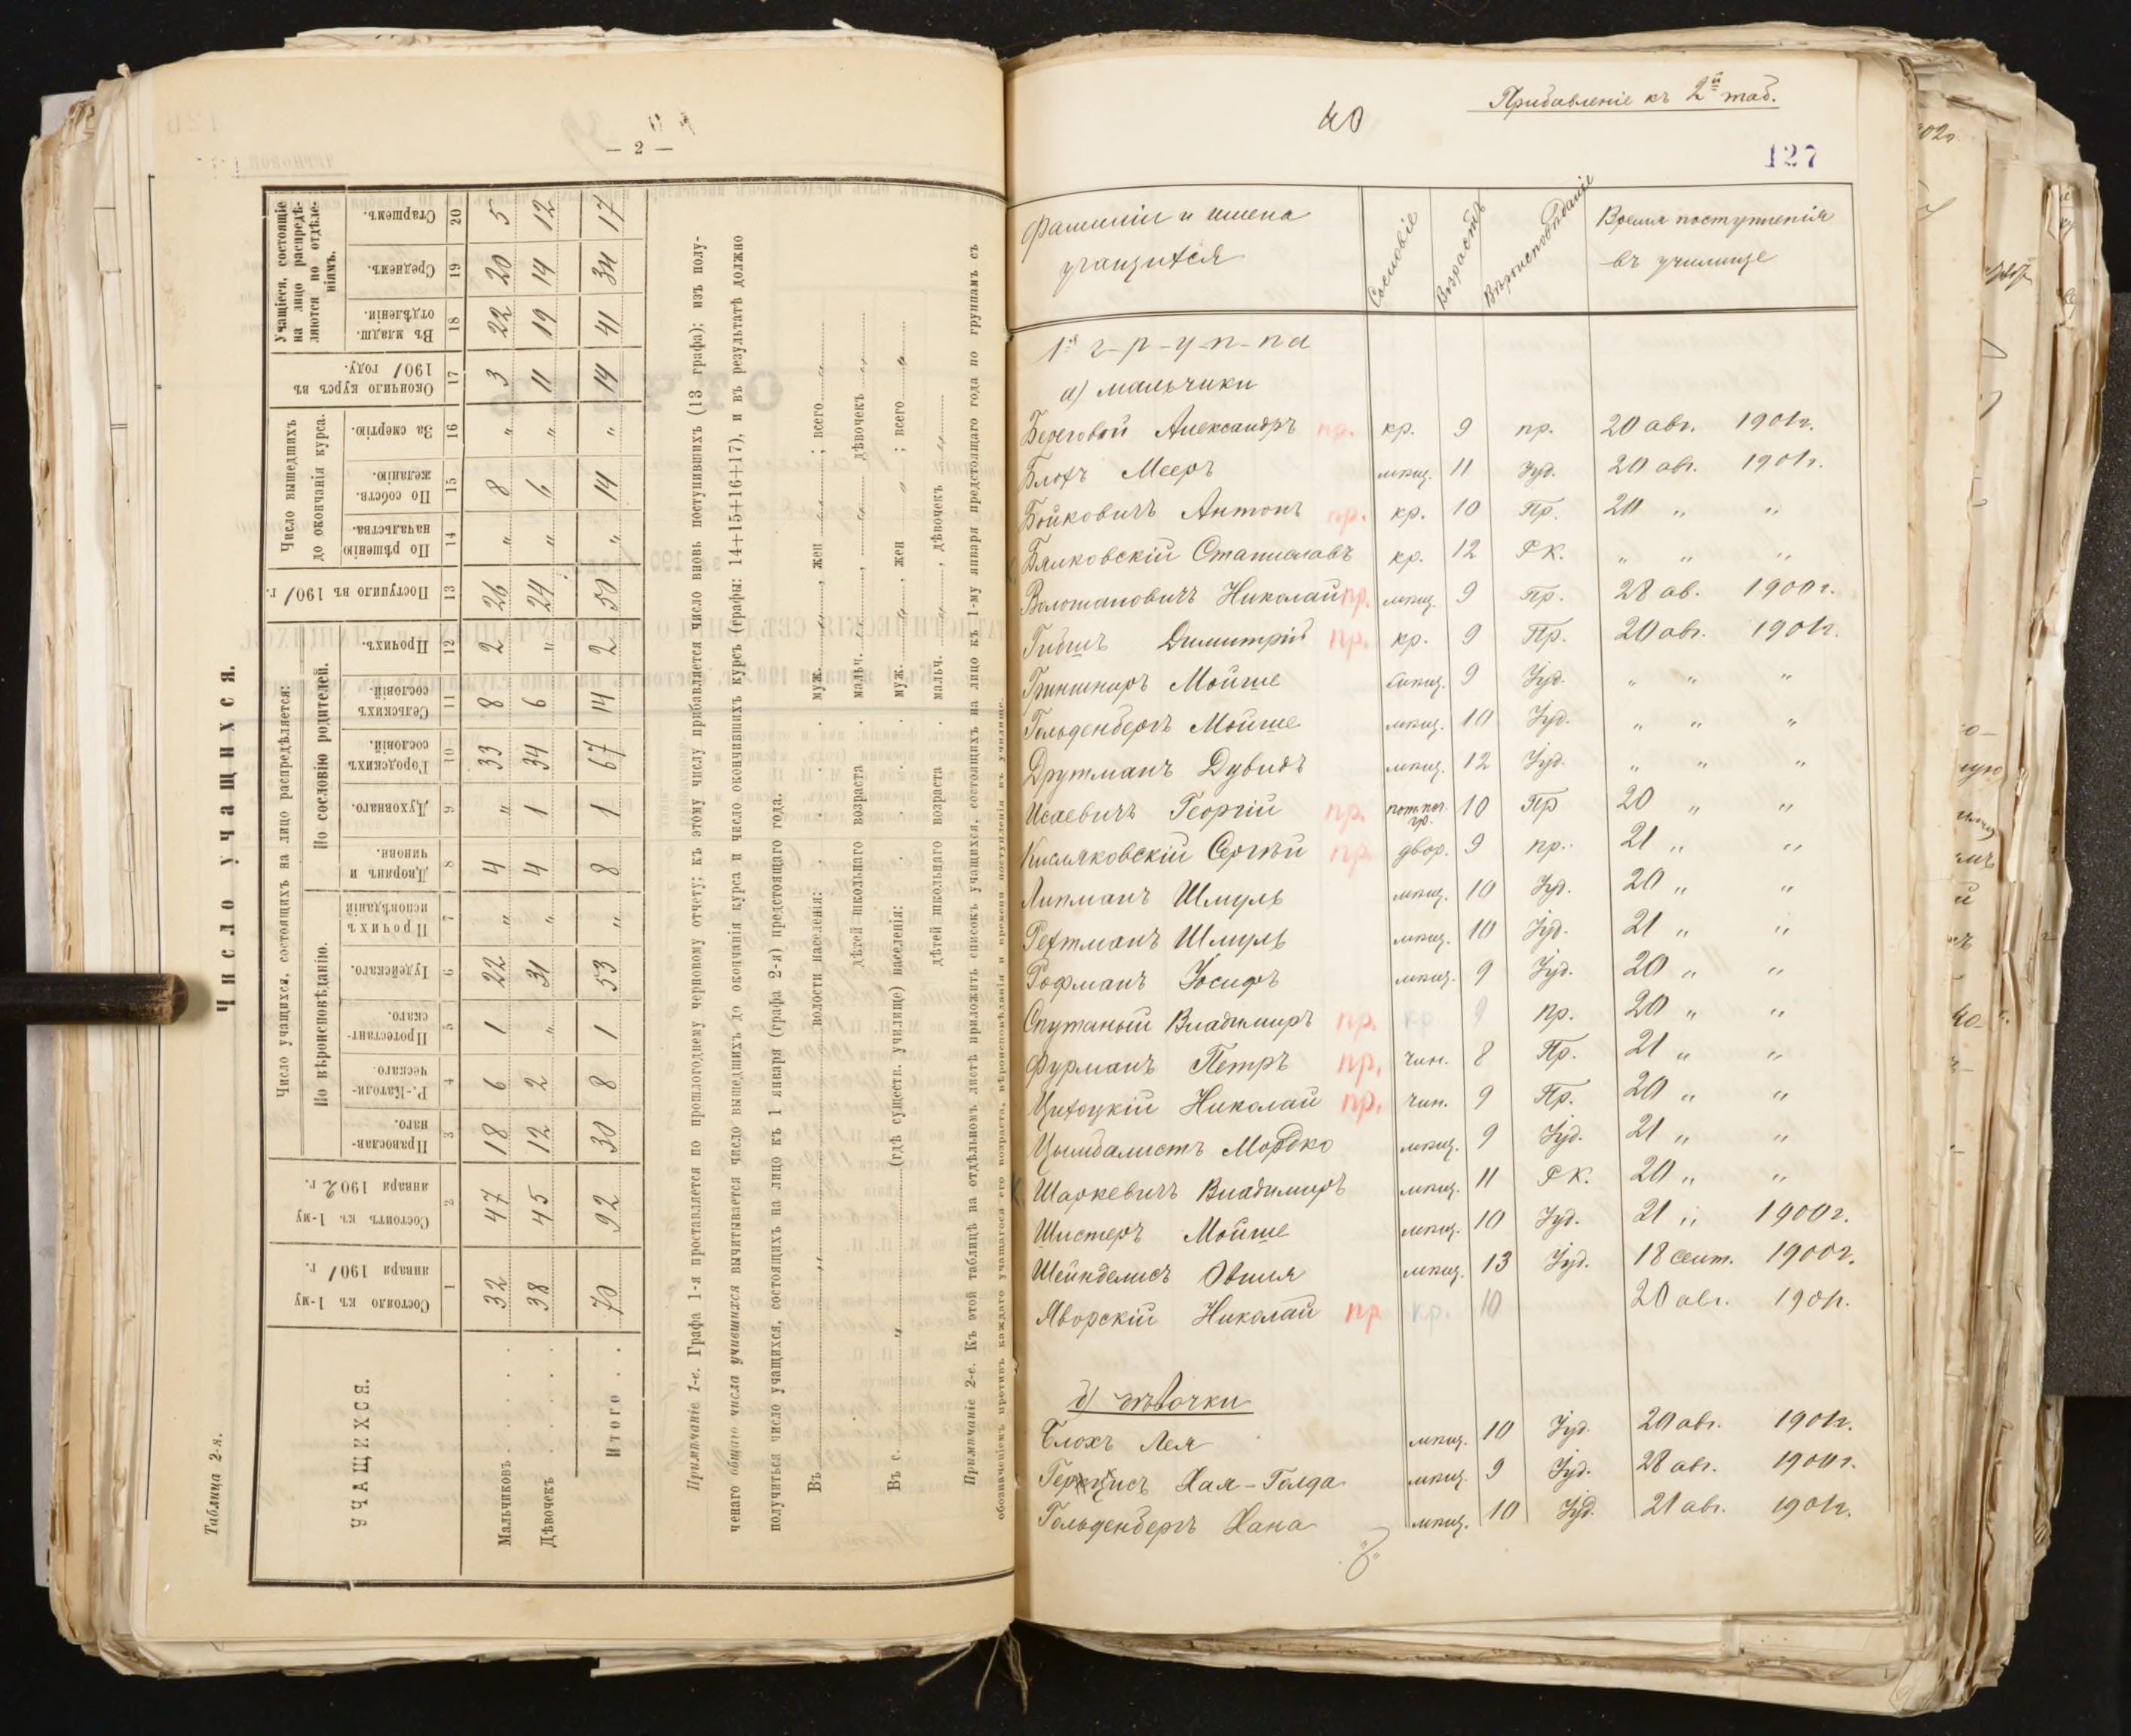 — 2 —
Таблица 2-я.
Число учащихся.
УЧАЩИХСЯ.
Состояло къ 1-му января 1901 г.
Состоитъ къ 1-му января 1902 г.
Число учащихся, состоящихъ на лицо распредѣляется:
По вѣроисповѣданію.
Православнаго.
Р.-Католическаго.
Протестантскаго.
Іудейскаго.
Прочихъ исповѣданій
По сословію родителей.
Дворянъ и чиновн.
Духовнаго.
Городскихъ сословій.
Сельскихъ сословій.
Прочихъ.
Поступило въ 1901 г.
Число вышедшихъ до окончанія курса.
По рѣшенію начальства.
По собств. желанію.
За смертію.
Окончило курсъ въ 1901 году.
Учащіеся, состоящіе на лицо распредѣляются по отдѣленіямъ.
Въ младш. отдѣленіи.
Среднемъ.
Старшемъ.
1 2 3 4 5 6 7 8 9 10 11 12 13 14 15 16 17 18 19 20
Мальчиковъ . . . . 32 47 18 6 1 22 „ 4 „ 33 8 2 26 „ 8 „ 3 22 20 5
Дѣвочекъ . . . . 38 45 12 2 „ 31 „ 4 1 34 6 „ 24 „ 6 „ 11 19 14 12
Итого . . 70 92 30 8 1 53 „ 8 1 67 14 2 50 „ 14 „ 14 41 34 17
Примѣчаніе 1-е. Графа 1-я проставляется по прошлогоднему черновому отчету; къ этому числу прибавляется число вновь поступившихъ (13 графа); изъ полу-
ченаго общаго числа учившихся вычитывается число вышедшихъ до окончанія курса и число окончившихъ курсъ (графы: 14+15+16+17), и въ результатѣ должно
получиться число учащихся, состоящихъ на лицо къ 1 января (графа 2-я) предстоящаго года.
Въ „ волости населенія: муж. „ , жен „ ; всего „
дѣтей школьнаго возраста мальч. „ , „ дѣвочекъ „
Въ с. „ (гдѣ существ. училище) населенія: муж. „ , жен „ ; всего „
дѣтей школьнаго возраста мальч. „ , дѣвочекъ „
Примѣчаніе 2-е. Къ этой таблицѣ на отдѣльномъ листѣ приложить списокъ учащихся, состоящихъ на лицо къ 1-му января предстоящаго года по группамъ съ
обозначеніемъ противъ каждаго учащагося его возраста, вѣроисповѣданія и времени поступленія въ училище.
40
Прибавленіе къ 2й таб.
127
Фамиліи и имена учащихся
Сословіе
Возрастъ
Вѣроисповѣданіе
Время поступленія въ училище
1я г-р-у-п-па
а) мальчики
Береговой Александръ пр. кр. 9 пр. 20 авг. 1901г.
Блохъ Мееръ мѣщ. 11 Іуд. 20 авг. 1901г.
Бойковичъ Антонъ пр. кр. 10 Пр. 20 „ „
Бялковскій Станиславъ кр. 12 РК. „ „ „
Волошановичъ Николай пр. мѣщ. 9 Пр. 28 ав. 1900г.
Гибшъ Димитрій пр. кр. 9 Пр. 20 авг. 1901г.
Гриншпаръ Мойше мѣщ. 9 Іуд. „ „ „
Гольденбергъ Мойше мѣщ. 10 Іуд. „ „ „
Друтманъ Дувидъ мѣщ. 12 Іуд. „ „ „
Исаевичъ Георгій пр. пот. поч. гр. 10 Пр 20 „ „
Кисляковскій Сергѣй пр двор. 9 пр. 21 „ „
Липманъ Шмуль мѣщ. 10 Іуд. 20 „ „
Рехтманъ Шмуль мѣщ. 10 Іуд. 21 „ „
Рофманъ Іосифъ мѣщ. 9 Іуд. 20 „ „
Спутаный Владимиръ пр. кр 9 пр. 20 „ „
Фурманъ Петръ пр. чин. 8 Пр. 21 „ „
Цихоцкій Николай пр. чин. 9 Пр. 20 „ „
Цымбалистъ Мордко мѣщ. 9 Іуд. 21 „ „
Шаркевичъ Владимиръ мѣщ. 11 РК. 20 „ „
Шистеръ Мойше мѣщ. 10 Іуд. 21 „ 1900г.
Шейнделисъ Овшія мѣщ. 13 Іуд. 18 сент. 1900г.
Яворскій Николай пр кр. 10 20 авг. 1901г.
б) дѣвочки
Блохъ Лея мѣщ. 10 Іуд. 20 авг. 1901г.
Хая-Голда мѣщ. 9 Іуд. 28 авг. 1900г.
Гольденбергъ Хана мѣщ. 10 Іуд. 21 авг. 1901г.